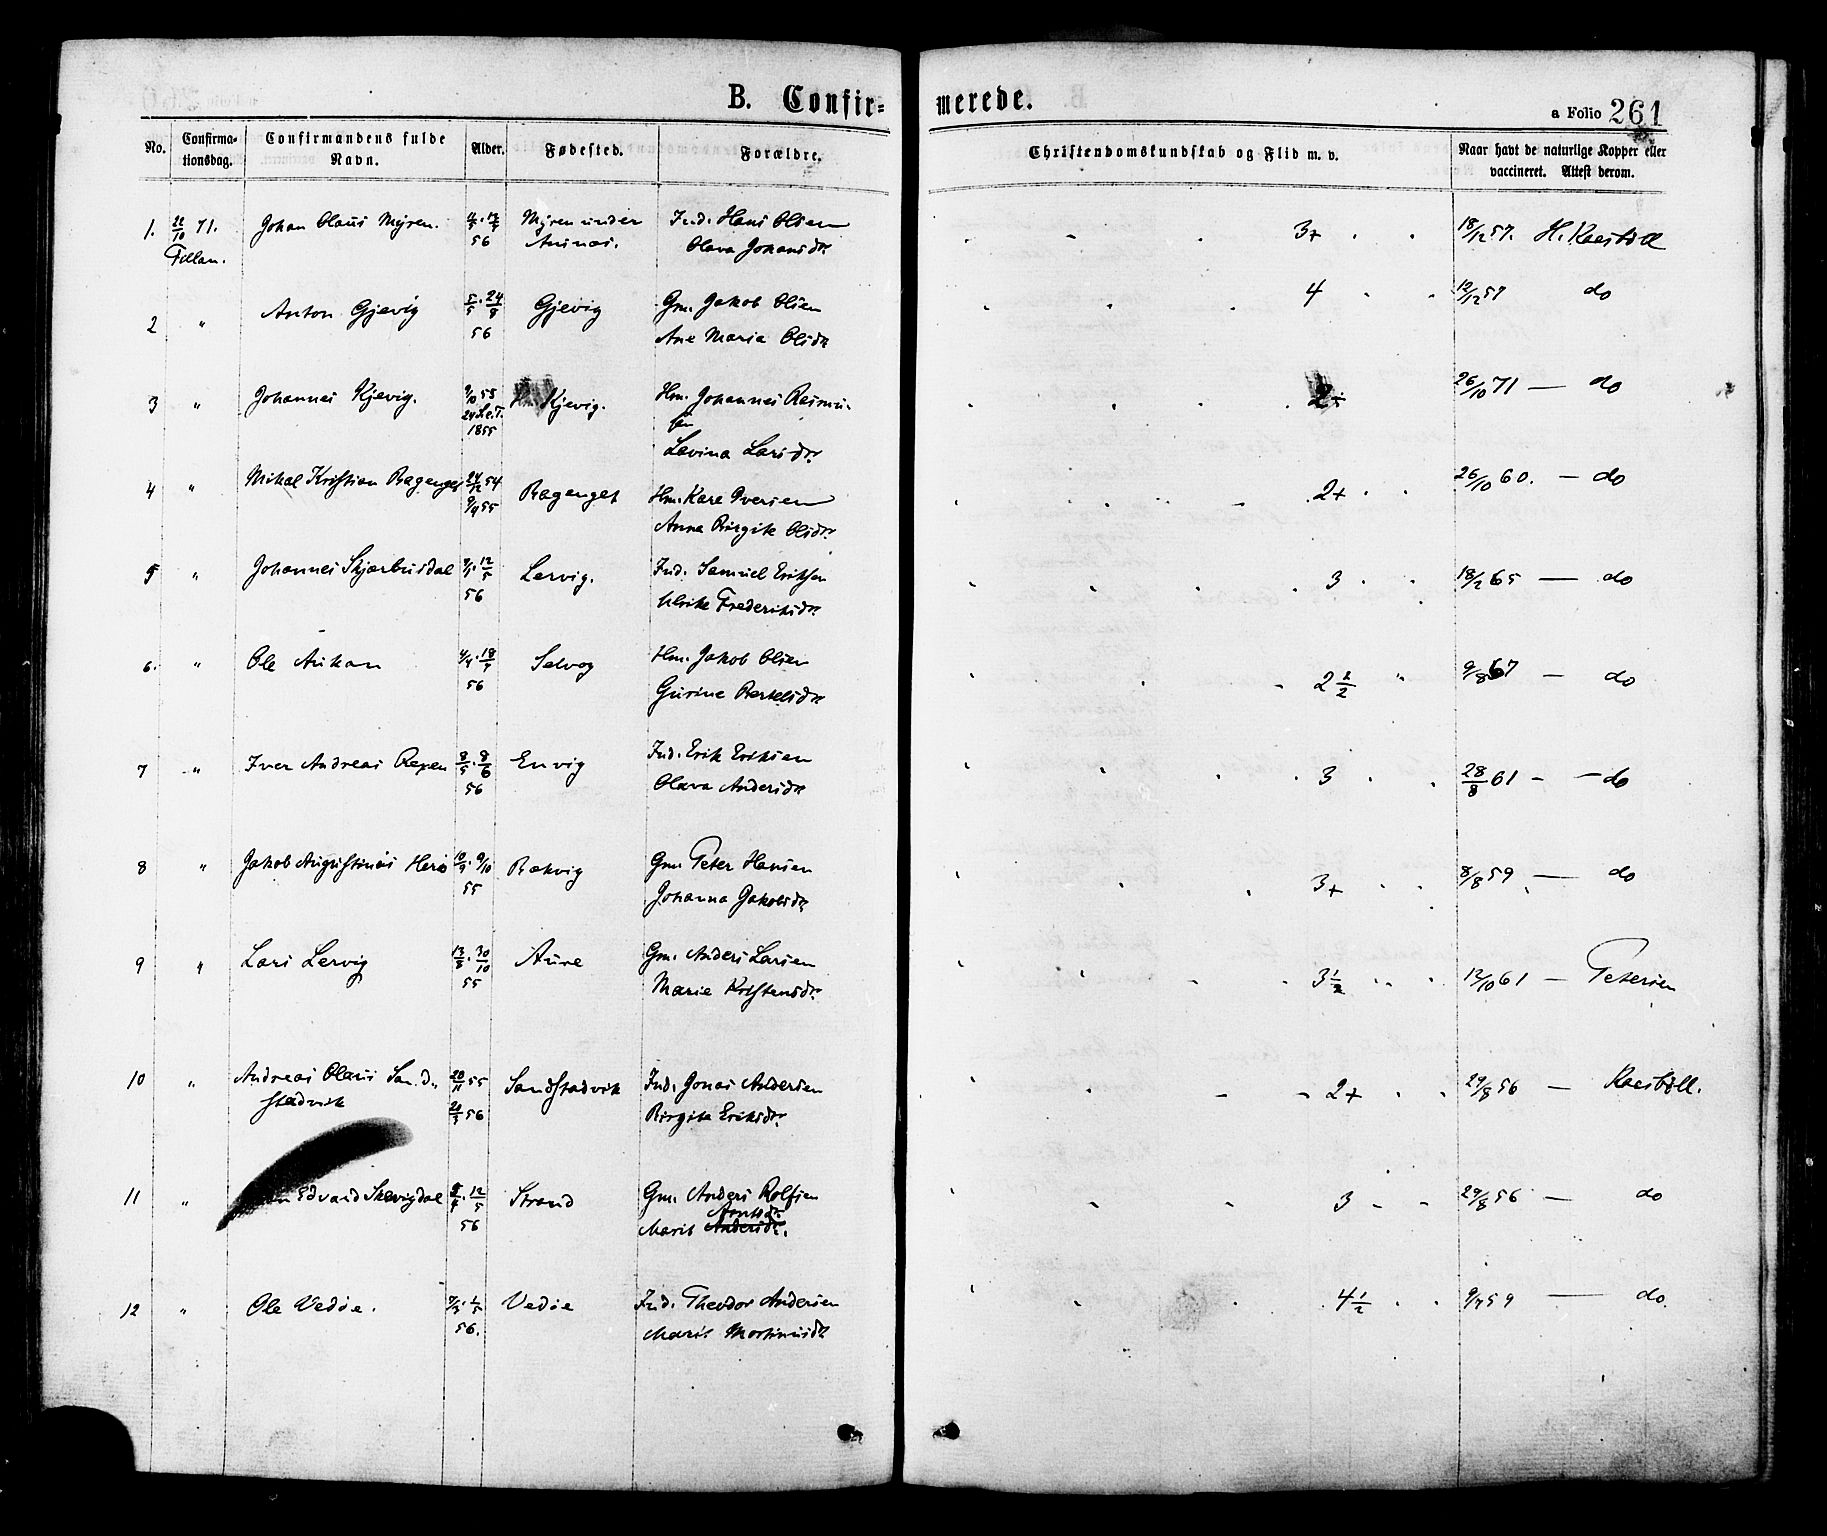 B. Confir-
merede.
a Folio 261
No.
Confirma-
tionsdag.
Confirmandens fulde
Navn.
Alder.
Fødested.
Forældre.
Christendomskundskab og Flid m. v.
Naar havt de naturlige Kopper eller
vaccineret. Attest derom.
1. 22/10 71. Johan Olaus Myren. Myren under Ind. Hans Olsen 3+ 18/12 57.
Fillan. 56 Olava Johansdr.
2 " Anton Gjevig 5/5. 24/8 Gjevig Gm. Jakob Olsen 4 12/12 57 do
56 Ane Maria Olsdr
3 " Johannes Kjevig. 9/10 55 Kjevig. Hm. Johannes Rasmu-
sen 2+ 26/10 71 — do
1855 Lavina Larsdr.
4 " Mikal Kristian Bagenget 24/12 54 Bagenget Hm. Kare Iversen 2+ 26/10 60. — do
9/4 55 Anna Birgite Olsdr.
5 " Johannes Skjærbusdal 12/5 Lervig. Ind. Samuel Eriksen 3 18/2 65 — do
56 Ulrike Frederiksdr.
6. " Ole Aukan 4/4. 18/7 Selvog Hm. Jakob Olsen 2 1/2 " 9/8 67 — do
56 Gurine Bertelsdr.
7 " Iver Andreas Repen 8/5. 8/6 Envig Ind. Erik Eriksen 3 28/8 61 - — do
56 Olava Andersdr
8 " Jakob Augustinus Herø 10/9. 9/10 Bekvig Gm. Peter Hansen 3+ 8/8 59 — do
55 Johanna Jakobsdr.
9 " Lars Lervig 13/8. 30/10 Aure Gm. Anders Larsen 3 1/2 12/10 61 — Petersen
55 Marie Kristensdr.
10 " Andreas Olaus Sand- 20/11 55 Sandstadvik Ind. Jonas Andersen 2+ 29/8 56 —
stadvik 56 Birgite Eriksdr.
11 " Edvard Skevigdal 12/5 Strand Gm. Anders Rolfsen 3 29/8 56 — do
56 Marit Andersdr. Arntsdr.
12 " Ole Vedøe. 1/5 Vedøe Ind. Theodor Andersen 4 1/2 9/7 59 — do.
56. Marit Martinusdr